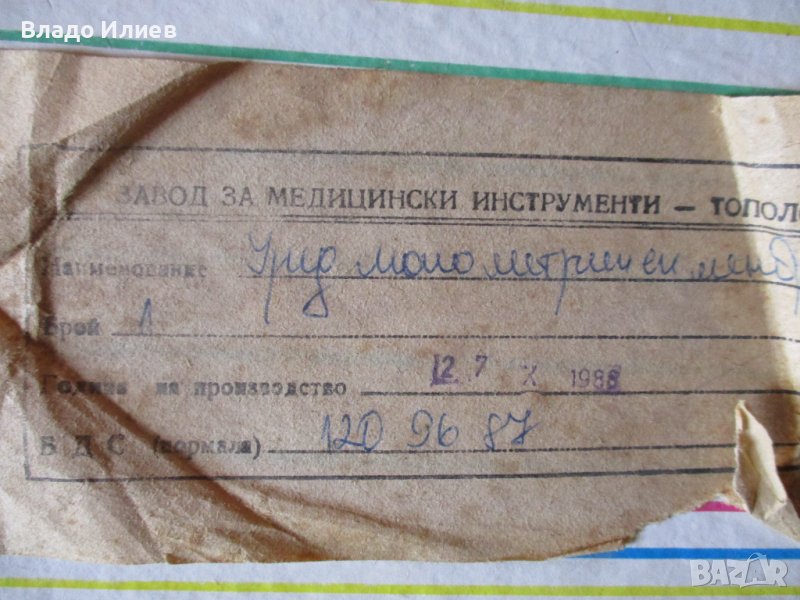 Владо Илиев
ЗАВОД ЗА МЕДИЦИНСКИ ИНСТРУМЕНТИ — ТОПОЛ
Наименование Уред моно метричен менд
Брой 1
Година на производство 12 7 X 1988
Б Д С (нормала) 120 96 87
BAZAR